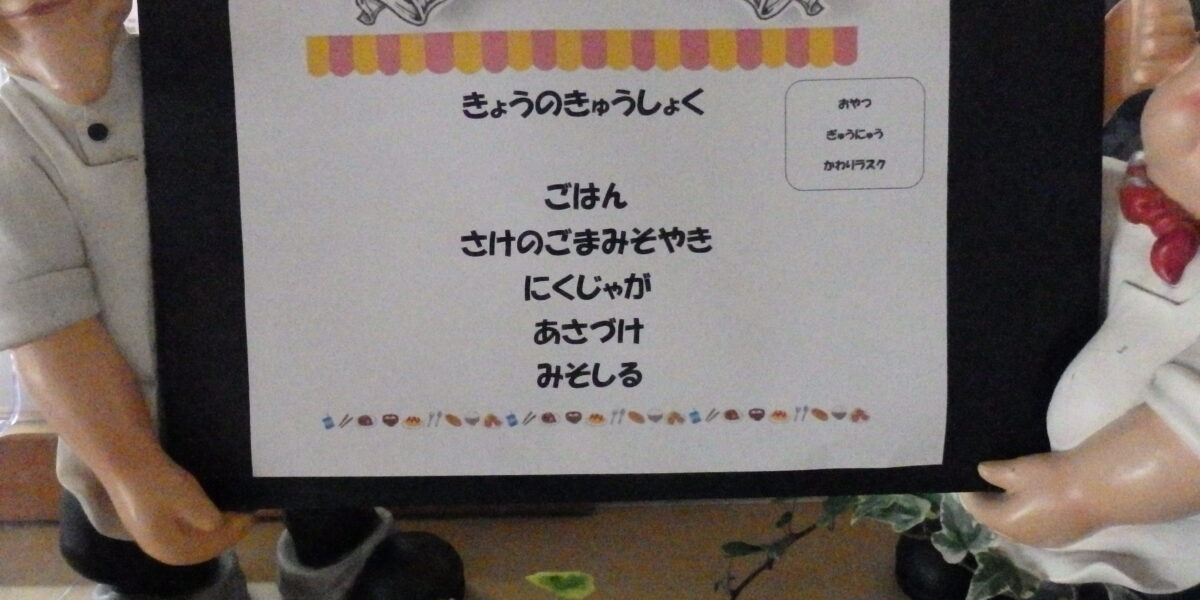 きょうのきゅうしょく
おやつ
ぎゅうにゅう
かわりラスク
ごはん
さけのごまみそやき
にくじゃが
あさづけ
みそしる